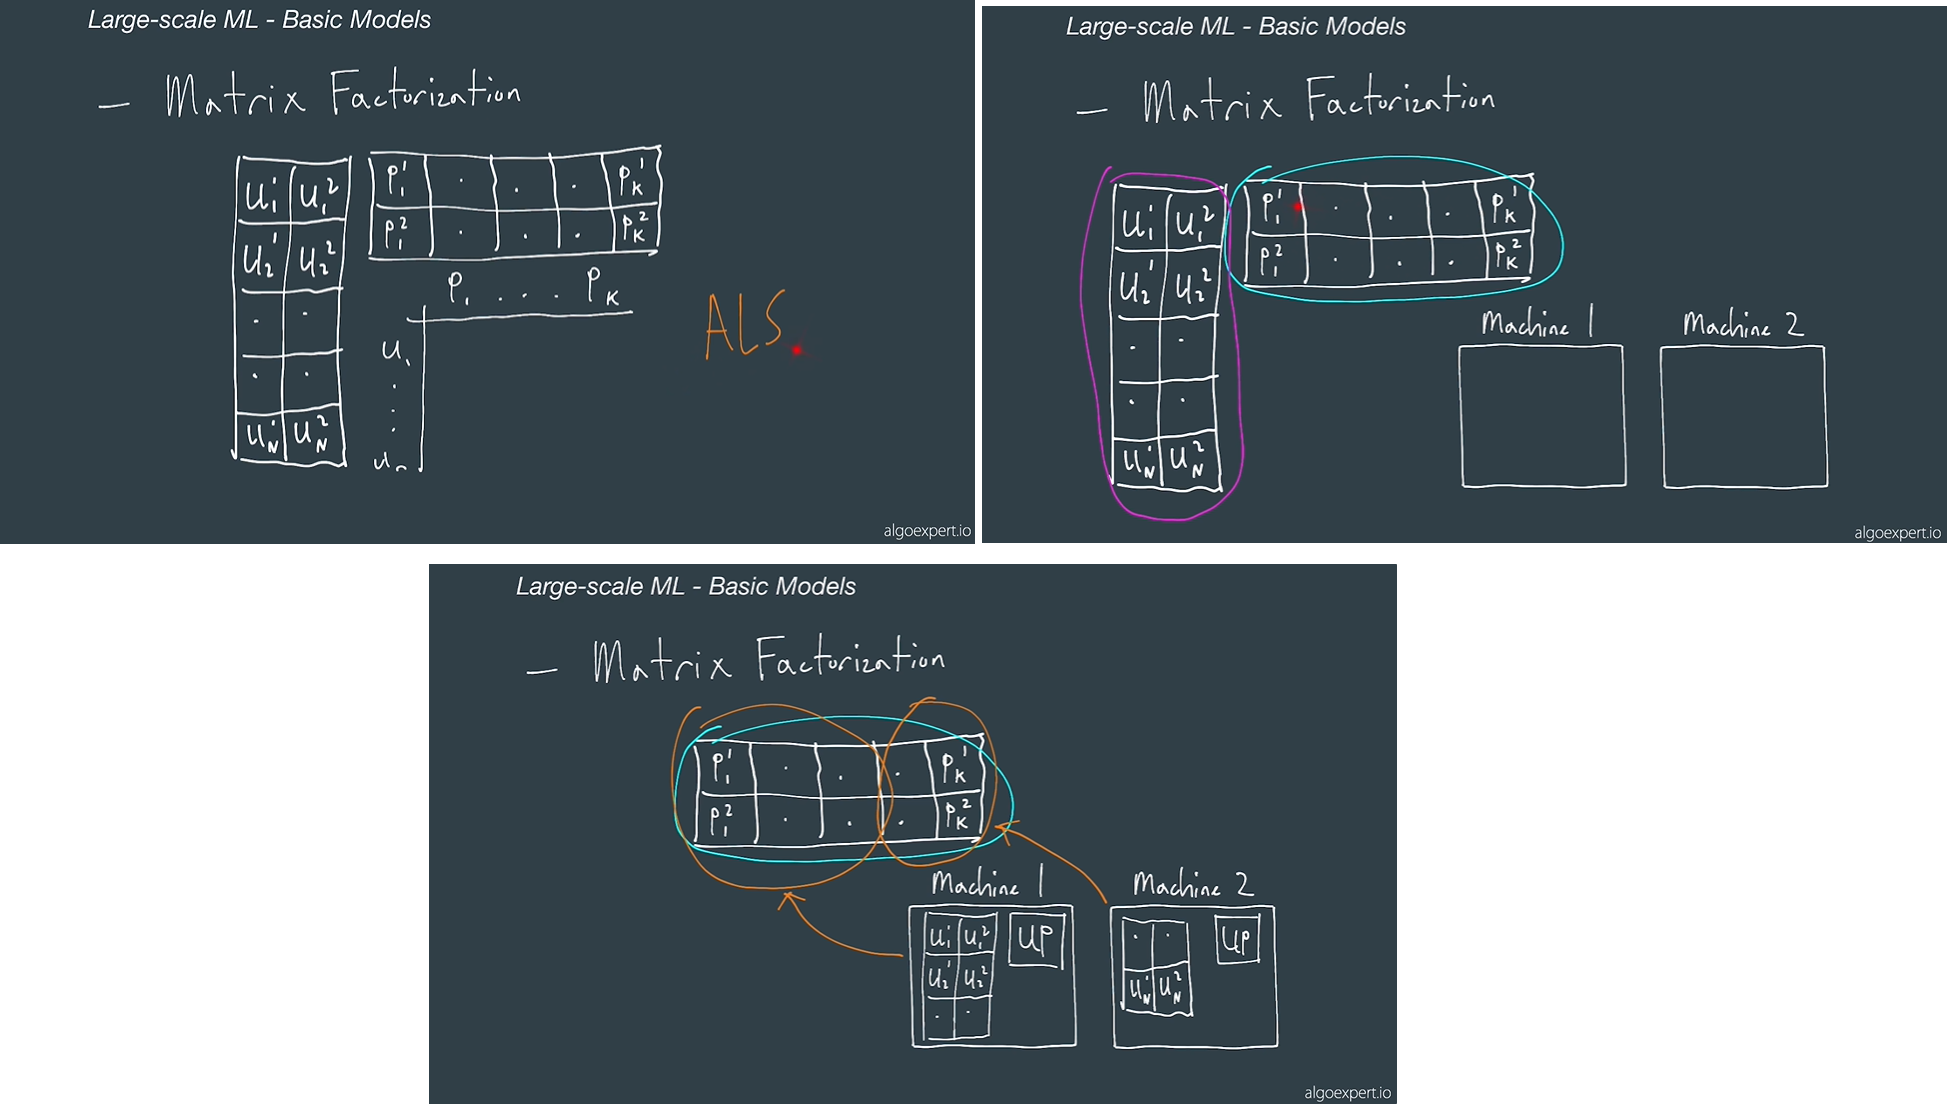 Large-scale ML - Basic Models
— Matrix Factorization
U₁¹ U₁² P₁¹ . . . Pₖ¹
U₂¹ U₂² P₁² . . . Pₖ²
. .
. .
Uₙ¹ Uₙ²
P₁ . . . Pₖ
U₁
.
.
.
Uₙ
ALS
algoexpert.io
Large-scale ML - Basic Models
— Matrix Factorization
U₁¹ U₁² P₁¹ . . . Pₖ¹
U₂¹ U₂² P₁² . . . Pₖ²
. .
. .
Uₙ¹ Uₙ²
Machine 1 Machine 2
algoexpert.io
Large-scale ML - Basic Models
— Matrix Factorization
P₁¹ . . . Pₖ¹
P₁² . . . Pₖ²
Machine 1 Machine 2
U₁¹ U₁² UP
U₂¹ U₂²
. .
. . UP
Uₙ¹ Uₙ²
algoexpert.io